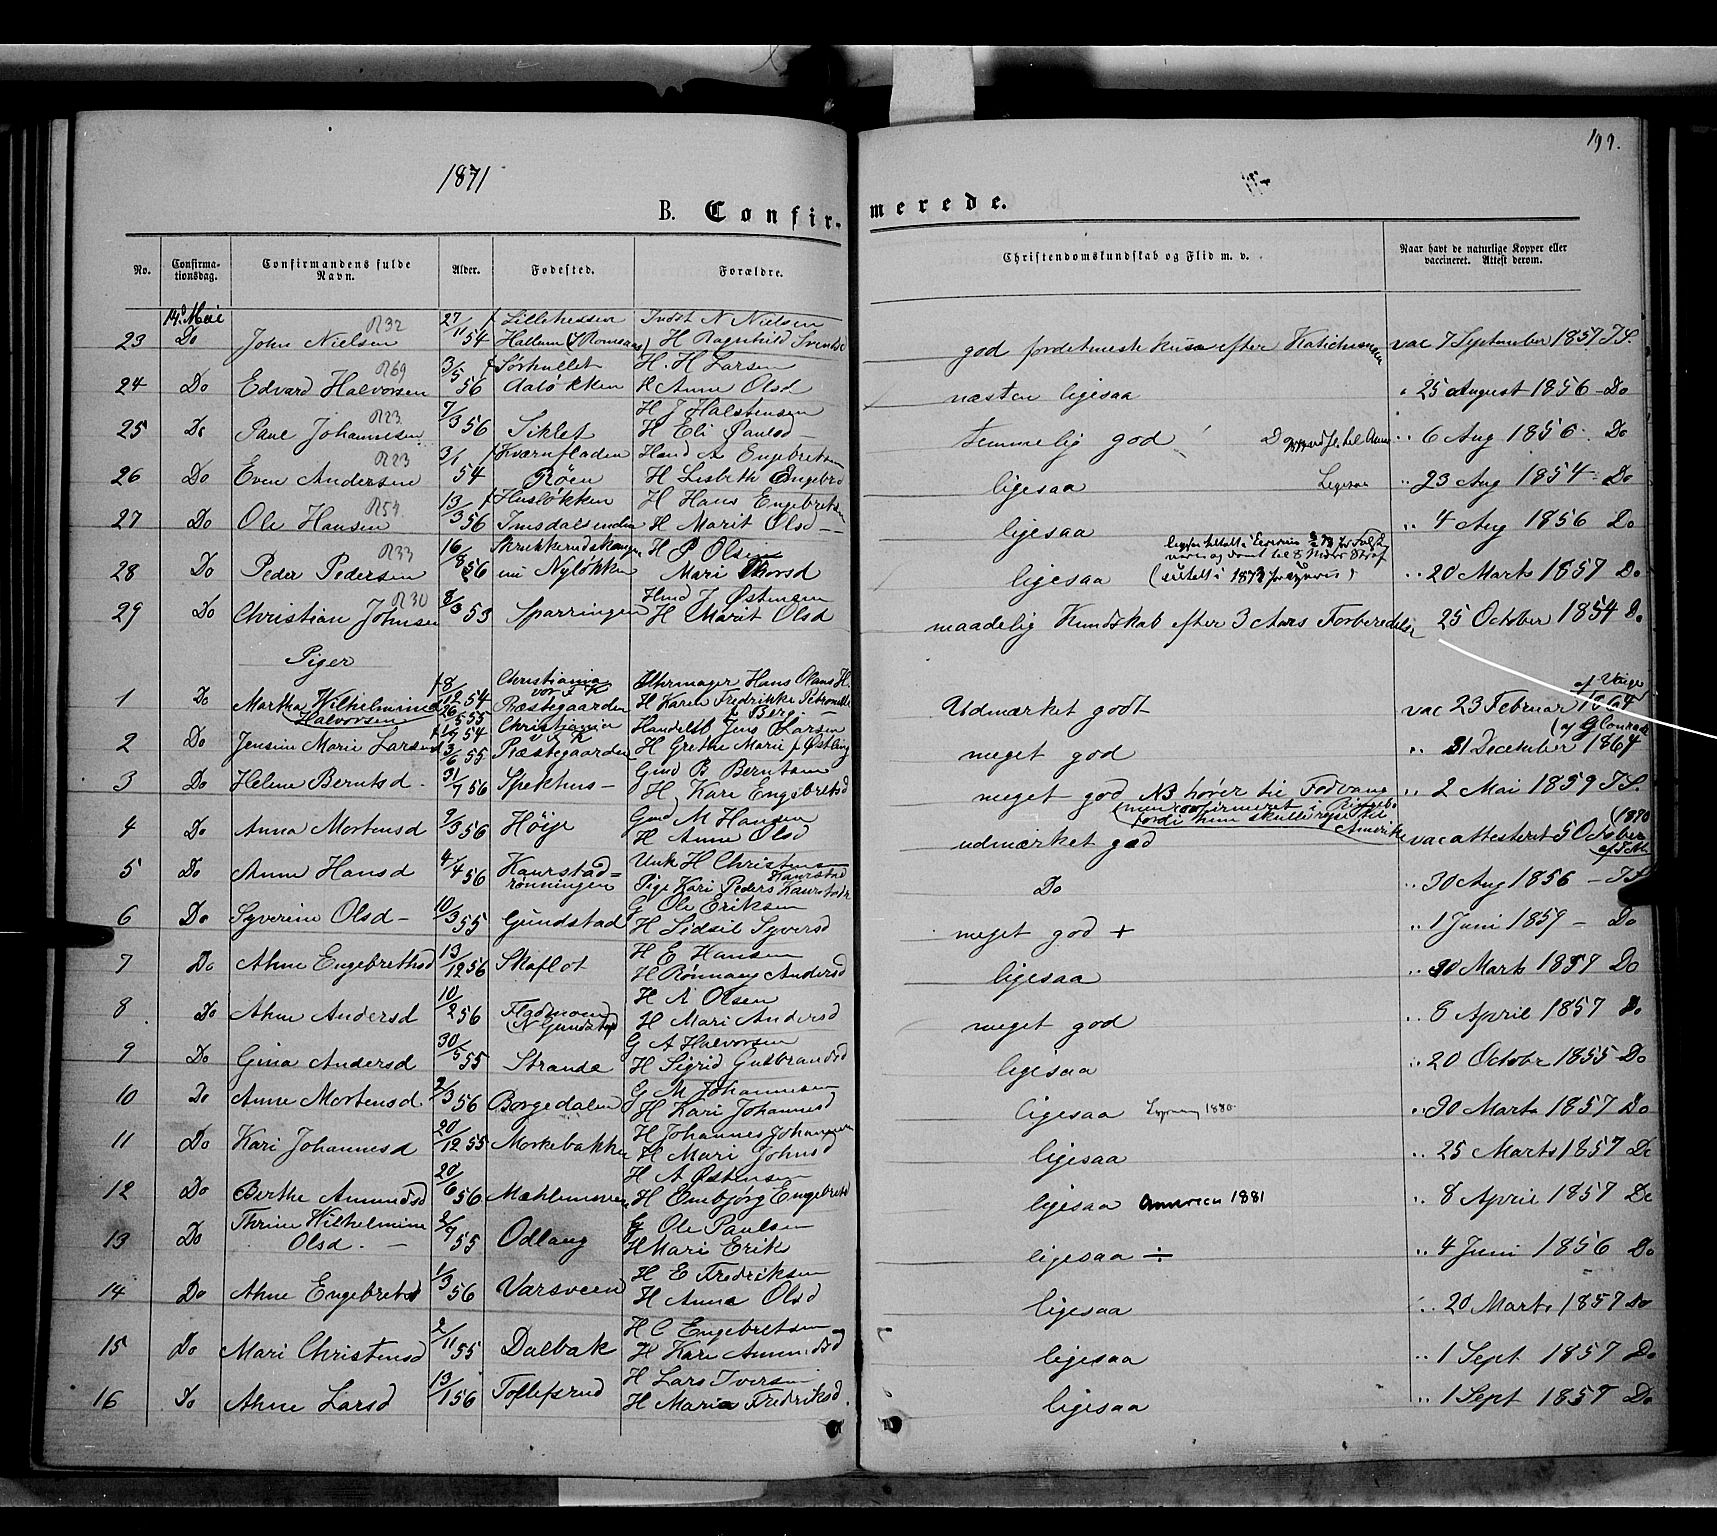 199.
1871
B. Confirmerede.
No. Confirmationsdag. Confirmandens fulde Navn. Alder. Fodested. Forældre. Christendomskundskab og Flid m. v. Naar havt de naturlige Kopper eller vaccineret. Attest derom.
14d Mai 27/11 54 Lillehessen N Nielsen
23 Do John Nielsen R32 Hallum H Ragnhild god efter vac 7 September 1857 J.S.
3/5 56 Sørhullet H. H Larsen
24 Do Edvard Halvorsen R69 Aaløkken K Anne Olsd næsten ligesaa " 25 August 1856 - Do
7/3 56 H J Halstensen
25 Do Paul Johannesen R23 Siklet H Eli Paulsd temmelig god " 6 Aug 1856. Do
3/1 54 Kværnfladen A Engebretsen
26 Do Even Andersen R23 Røen H Lisbeth Engebrd ligesaa Ligesaa " 23 Aug 1854 - Do
13/3 56 Husløkken H Hans Engebretsen
27 Do Ole Hansen R54 Imsdalsenden H Marit Olsd - ligesaa " 4 Aug 1856 Do
16/8 56 H P Olsen
28 Do Peder Pedersen R33 Nyløkken Mari Thorsd ligesaa " 20 Marts 1857 Do
8/3 53 J Østensen
29 Do Christian Johnsen R30 Sparringen H Marit Olsd maadelig Kundskab efter 3 Aars Forberedelse 25 October 1854 Do
Piger
18/12 54 Christiania Hans H.
1 Do Martha Wilhelmine Halvorsen Præstegaarden H Karen Fredrikke Petronelle f Berg Udmærket godt vac 23 Februar 1864
Christiania Jens Larsen
2 Do Jensine Marie Larsen 3/6 55 Præstegaarden H Grethe Marie f Østling meget god " 31 December 1864
31/7 56 Gmd B Berntsen
3 Do Helene Berntsd. Spekhus - H Kari Engebretsd meget god NB hører til Fodvang " 2 Mai 1859 J.S.
(men confirmeret i Ringebo
fordi hun skulle rejse til Amerika
9/3 56 Gmd M Hansen
4 Do Anna Mortensd Höije H Anne Olsd udmærket god vac attesteret 5 October (1870
4/4 56 Unk H Christensen Kaurstad
5 Do Anne Hansd Kaurstadrønningen Pige Kari Peders Kaurstad Do " 30 Aug 1856 - J.S
10/3 55 G Ole Eriksen
6 Do Syverine Olsd - Gundstad H Sidsel Syversd meget god + " 1 Juni 1859 - Do
13/12 56 H E Hansen
7 Do Ahne Engebrethsd Skaflot H Rønnaug Andersd ligesaa " 30 Marts 1857 Do
10/2 56 H A Olsen
8 Do Ahne Andersd Fladmoen (N Gundstad) H Mari Andersd meget god " 8 April 1857 Do
30/5 55 G A Halvorsen
9 Do Gina Andersd Strande H Sigrid Gulbrandsd ligesaa " 20 Octobr 1855 Do
2/3 56 G M Johannesen
10 Do Anne Mortensd Borgedalen H Kari Johannesd ligesaa 1880 " 30 Marts 1857 Do
20/12 55 H Johannes Johannesen
11 Do Kari Johannesd Morkebakken H Mari Johnsd ligesaa " 25 Marts 1857 Do
20/6 56 H A Østensen
12 Do Berthe Amundsd Mæhlumsveen H Embjørg Engebretsd ligesaa America 1881 " 8 April 1857 Do
2/7 55 G Ole Paulsen
13 Do Thrine Wilhelmine Olsd. - Odlaug H Mari Eriks ligesaa ÷ " 4 Juni 1856 Do
1/3 56 H E Fredriksen
14 Do Ahne Engebretsd Varsveen H Anna Olsd ligesaa " 20 Marts 1857 Do
2/11 55 H C Engebretsen
15 Do Mari Christensd Dalbak H Kari Amundsd ligesaa " 1 Sept 1857 Do
13/1 56 H Lars Iversen
16 Do Ahne Larsd Tollefsrud H Maria Fredriksd. ligesaa " 1 Sept 1857 Do